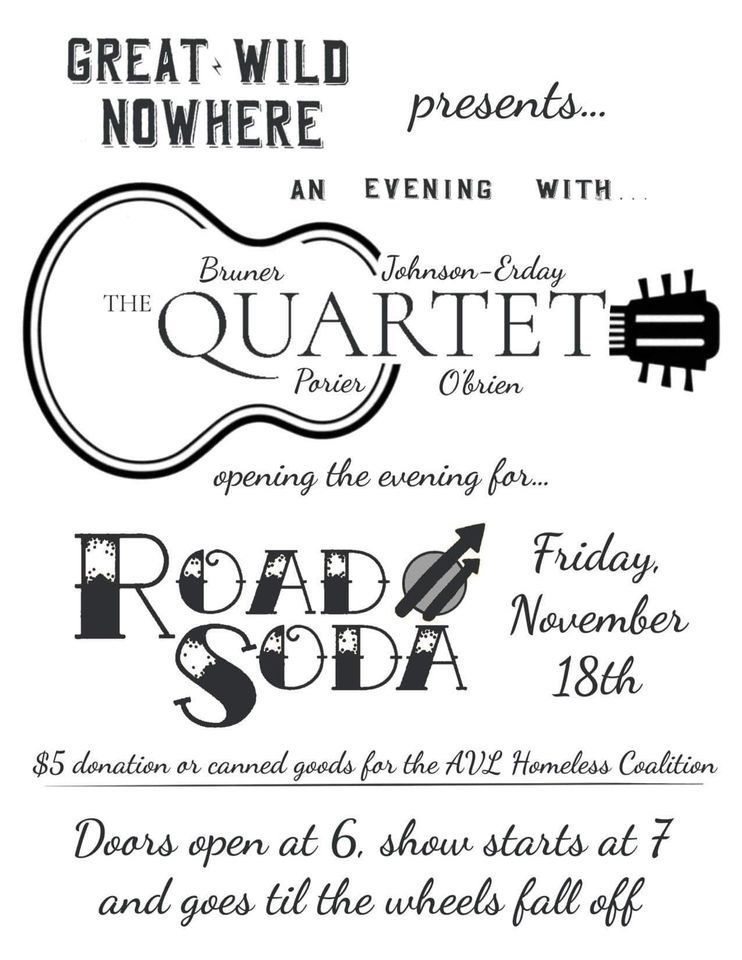 GREAT WILD
NOWHERE
presents...
AN EVENING WITH...
Bruner Johnson-Erday
THE QUARTET
Porier O'brien
opening the evening for...
ROAD
SODA
Friday,
November
18th
$5 donation or canned goods for the AVL Homeless Coalition
Doors open at 6, show starts at 7
and goes til the wheels fall off